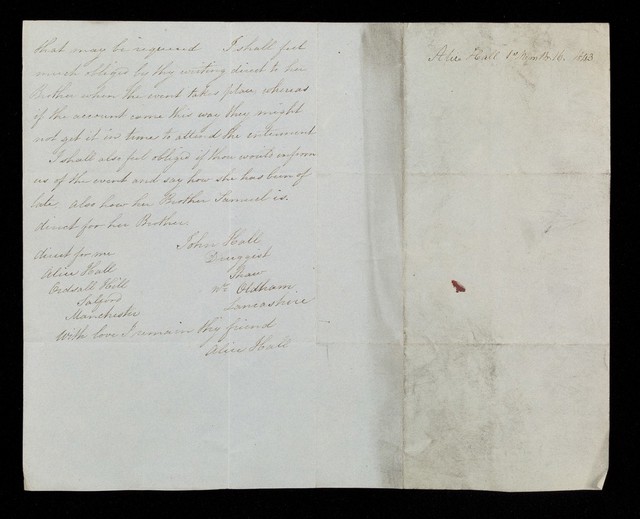 that may be required I shall feel
much obliged by thy writing direct to her
Brother when the event takes place, whereas
if the account came this way they might
not get it in time to attend the interment
I shall also feel obliged if thou would inform
us of the event and say how she has been of
late also how her Brother Samuel is.
direct for her Brother
John Hall
Druggist
Shaw
Nr Oldham
Lancashire
direct for me
Alice Hall
Ordsall Hill
Salford
Manchester
With love I remain thy friend
Alice Hall
Alice Hall 1st 16.